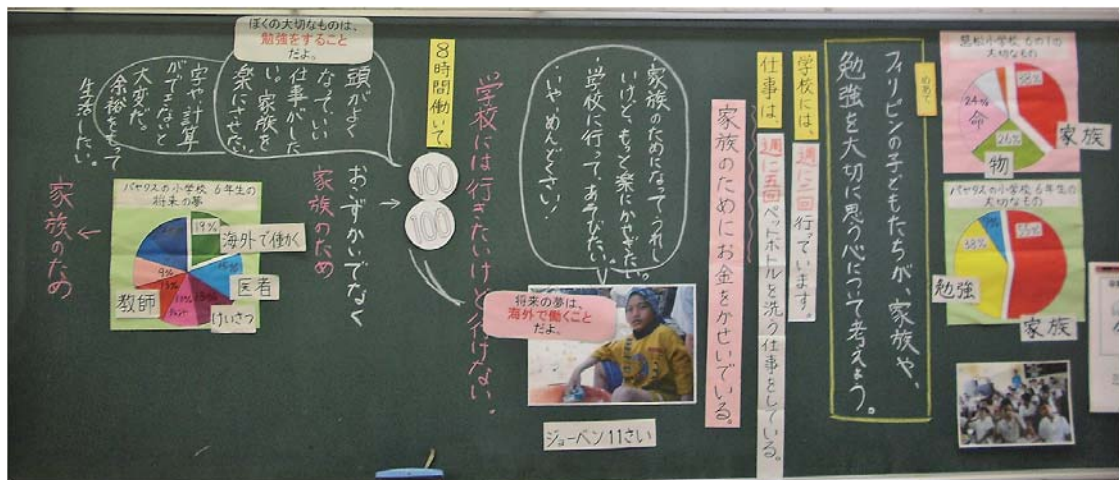 小学校 6の1の
大切なもの
38%
24%
命
26%
物
家族
パヤタスの小学校 6年生の
大切なもの
7%
38%
55%
勉強
家族
めあて
フィリピンの子どもたちが、家族や、
勉強を大切に思う心について考えよう。
学校には、
週に二回行っています。
仕事は、
週に五回ペットボトルを洗う仕事をしている。
家族のためにお金をかせいでいる。
家族のためになってうれし
いけど、もっと楽にかせぎたい。
学校に行って、あそびたい。
いや、めんどくさい!
将来の夢は、
海外で働くこと
だよ。
ジョーベン11さい
学校には行きたいけど行けない。
8時間働いて、
100
100
おこずかいでなく
家族のため
ぼくの大切なものは、
勉強をすること
だよ。
頭がよく
なっていい
仕事がした
い。家族を
楽にさせたい。
字や計算
ができないと
大変だ。
余裕をもって
生活したい。
パヤタスの小学校 6年生の
将来の夢
19%
海外で働く
医者
けいさつ
教師
9%
13%
家族のため